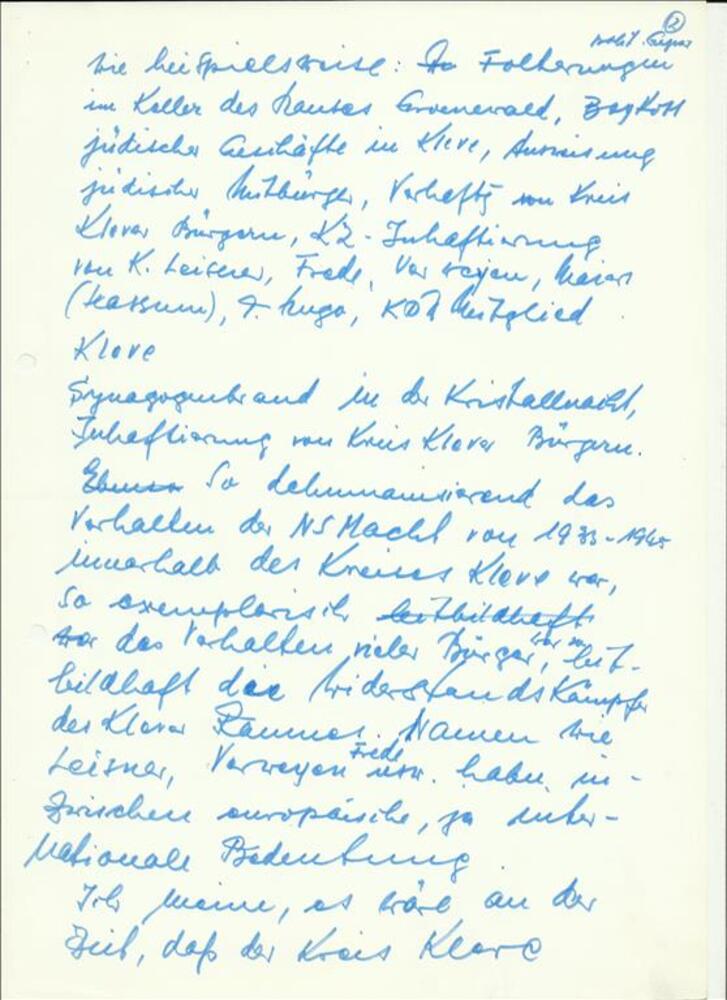 2
wie beispielsweise: Folterungen
im Keller des Hauses Groenewald, Boykott
jüdischer Geschäfte in Kleve, Ausweisung
jüdischer Mitbürger, Verhaftg von Kreis
Klever Bürgern, KZ-Inhaftierung
von K. Leisner, Frede, Verweyen, Maier
, Hugo, Mitglied
Kleve
Synagogenbrand in der Kristallnacht,
Inhaftierung von Kreis Klever Bürgern.
Ebenso So dehumanisierend das
Verhalten der NS Macht von 1933-1945
innerhalb des Kreises Kleve war,
so exemplarisch leitbildhaft
war das Verhalten vieler Bürger, leit-
bildhaft der Widerstandskämpfer
des Klever Raumes. Namen wie
Leisner, Verweyen Frede usw. haben in-
zwischen europäische, ja inter-
nationale Bedeutung
Ich meine, es wäre an der
Zeit, daß der Kreis Kleve